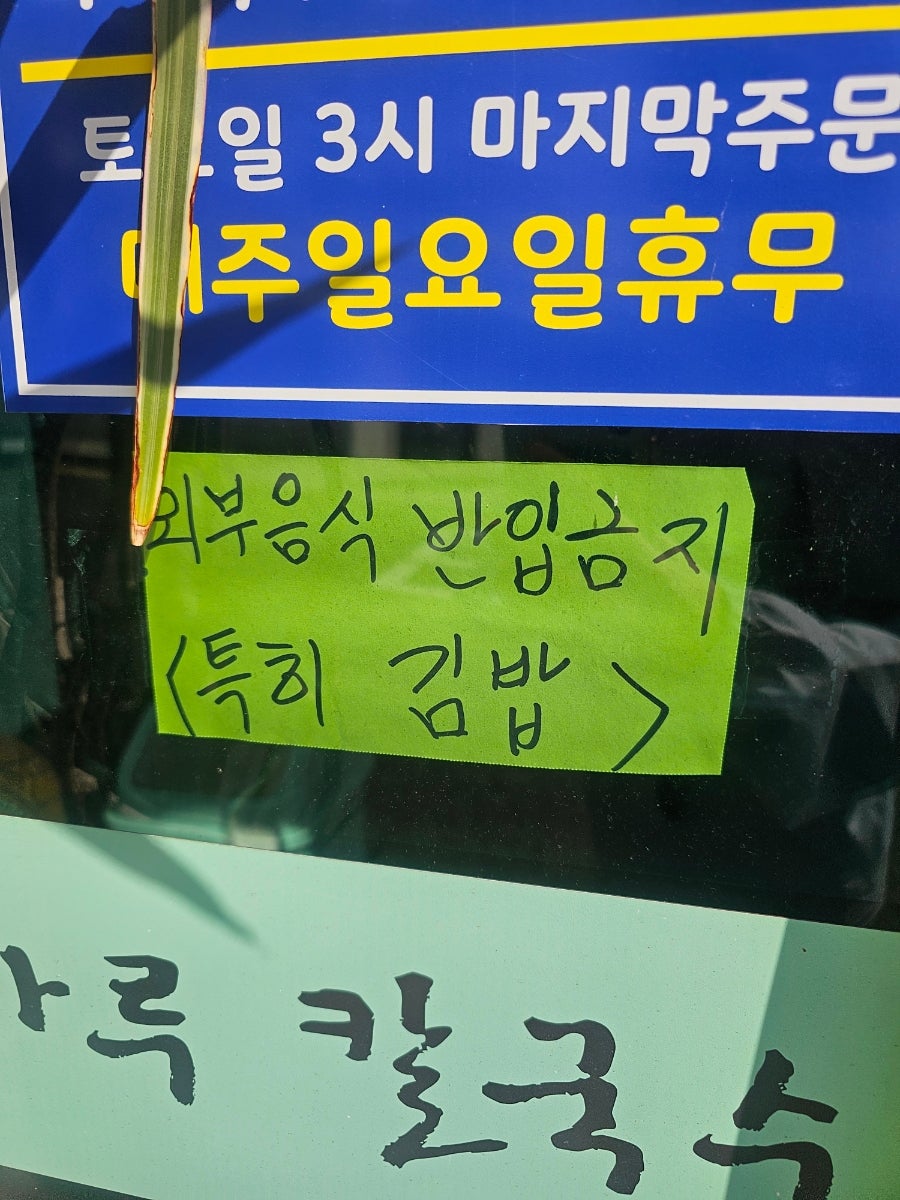 토요일 3시 마지막주문
매주일요일휴무
외부음식 반입금지
<특히 김밥>
루 칼국수